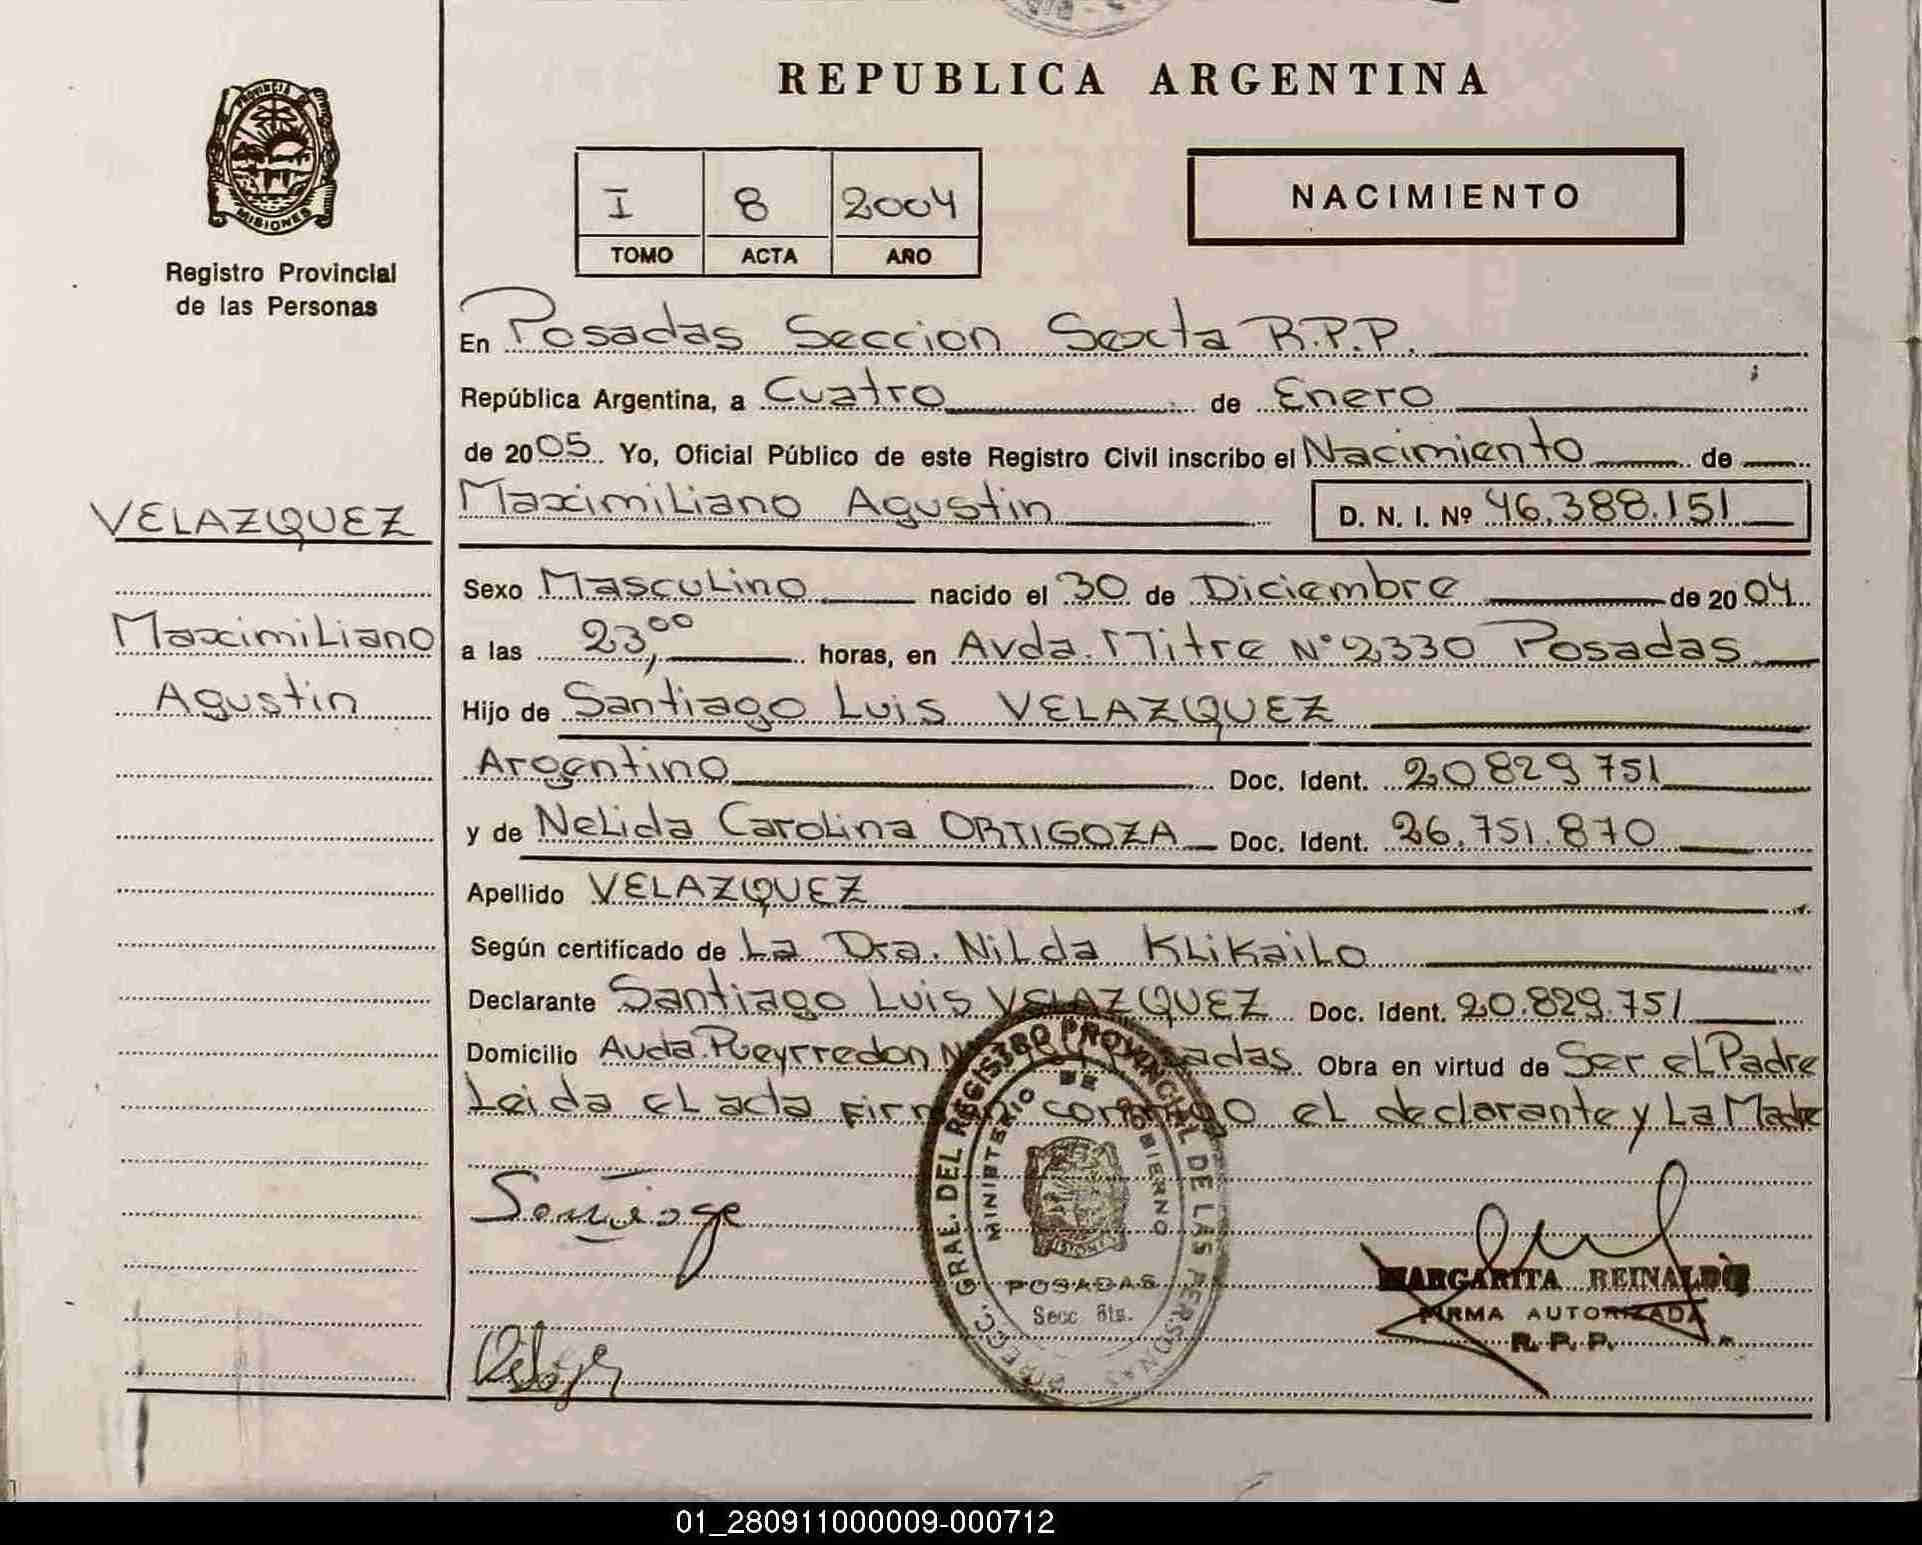 REPUBLICA ARGENTINA
PROVINCIA DE
MISIONES
Registro Provincial
de las Personas
I 8 2004
TOMO ACTA AÑO
NACIMIENTO
VELAZQUEZ
Maximiliano
Agustin
En Posadas Seccion Sexta R.P.P.
República Argentina, a Cuatro de Enero
de 2005. Yo, Oficial Público de este Registro Civil inscribo el Nacimiento de
Maximiliano Agustin D. N. I. Nº 46.388.151
Sexo Masculino nacido el 30 de Diciembre de 2004
a las 23,00 horas, en Avda. Mitre N° 2330 Posadas
Hijo de Santiago Luis VELAZQUEZ
Argentino Doc. Ident. 20829751
y de Nelida Carolina ORTIGOZA Doc. Ident. 26.751.870
Apellido VELAZQUEZ
Según certificado de La Dra. Nilda Klikailo
Declarante Santiago Luis VELAZQUEZ Doc. Ident. 20.829.751
Domicilio Avda. Pueyrredon Posadas. Obra en virtud de Ser el Padre
Leida el acta firman conmigo el declarante y La Madre
DIRECC. GRAL. DEL REGISTRO PROVINCIAL DE LAS PERSONAS
MINISTERIO DE GOBIERNO
MISIONES
POSADAS
Secc 6ta.
MARGARITA REINALDO
FIRMA AUTORIZADA
R. P. P.
01_280911000009-000712